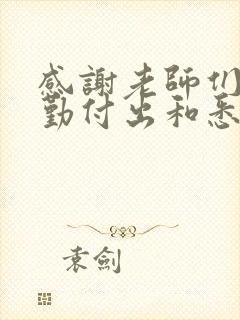 感謝老師们
勤付出和悉
袁劍